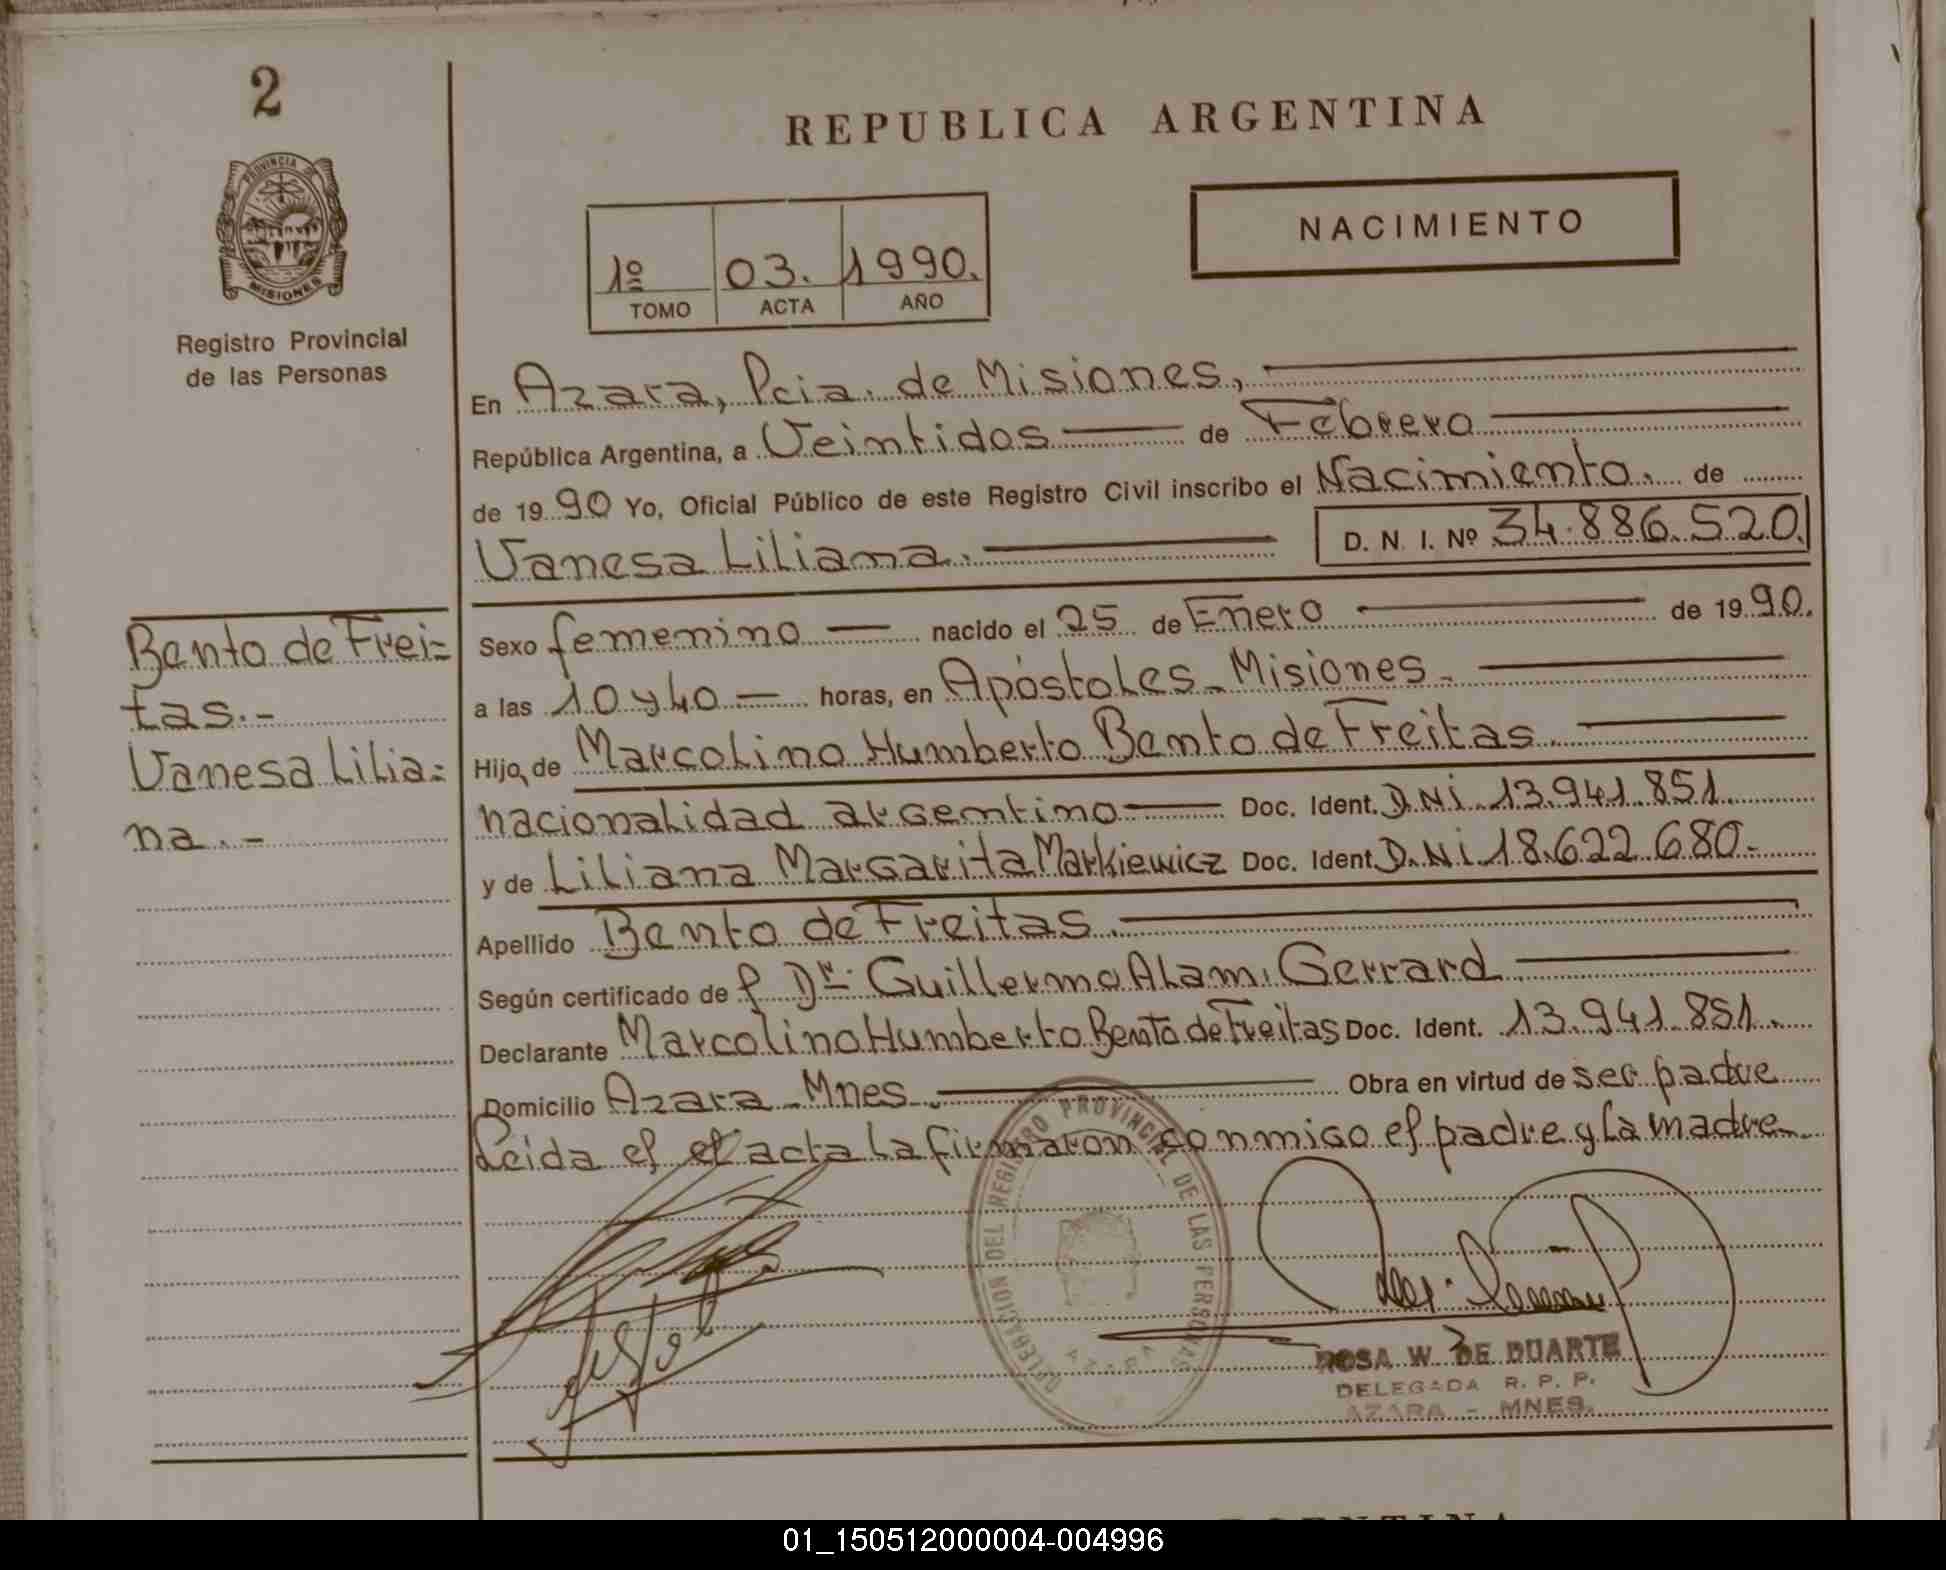 2
PROVINCIA DE
MISIONES
Registro Provincial
de las Personas
Bento de Frei=
tas.-
Vanesa Lilia=
na.-
REPUBLICA ARGENTINA
NACIMIENTO
1º 03. 1990.
TOMO ACTA AÑO
En Azara, Pcia. de Misiones,
República Argentina, a Veintidos de Febrero
de 1990 Yo, Oficial Público de este Registro Civil inscribo el Nacimiento. de
Vanesa Liliana. D. N. I. Nº 34.886.520.
Sexo femenino nacido el 25 de Enero de 1990.
a las 10 y 40 horas, en Apóstoles - Misiones.
Hijo, de Marcolino Humberto Bento de Freitas.
nacionalidad argentino Doc. Ident. D.N.i. 13.941.851.
y de Liliana Margarita Markiewicz Doc. Ident. D.N.i. 18.622.680.-
Apellido Bento de Freitas.
Según certificado de f Dr. Guillermo Alam. Gerrard
Declarante Marcolino Humberto Bento de Freitas Doc. Ident. 13.941.851.
Domicilio Azara - Mnes. Obra en virtud de ser padre
Leida el el acta la firmaron conmigo el padre y la madre.
DELEGACION DEL REGISTRO PROVINCIAL DE LAS PERSONAS
AZARA
ROSA W. DE DUARTE
DELEGADA R. P. P.
AZARA - MNES.
01_150512000004-004996